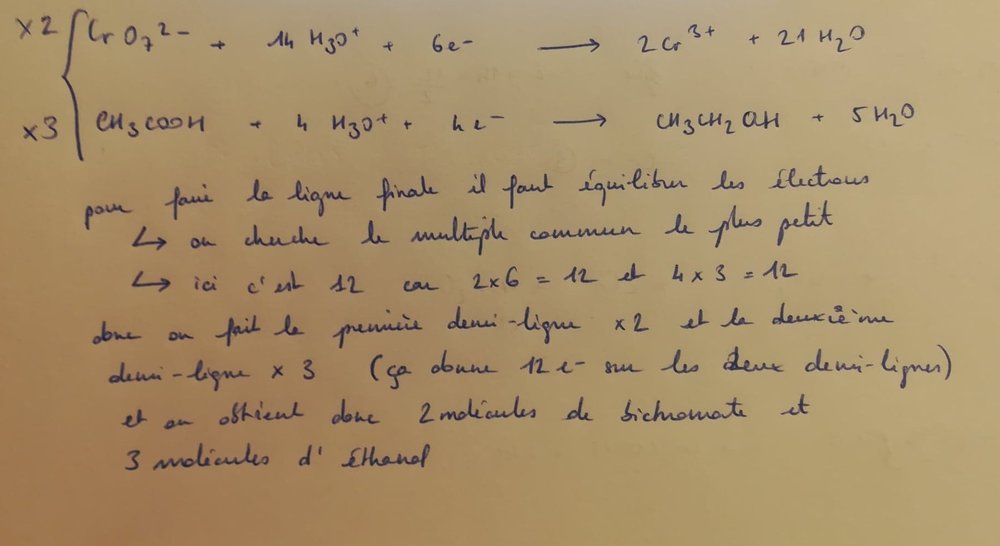 x2 CrO₇²⁻ + 14 H₃O⁺ + 6e⁻ → 2Cr³⁺ + 21 H₂O
x3 CH₃COOH + 4 H₃O⁺ + 4e⁻ → CH₃CH₂OH + 5H₂O
pour faire la ligne finale il faut équilibrer les électrons
↳ on cherche le multiple commun le plus petit
↳ ici c'est 12 car 2x6 = 12 et 4x3 = 12
donc on fait la première demi-ligne x2 et la deuxième
demi-ligne x 3 (ça donne 12 e- sur les deux demi-lignes)
et on obtient donc 2 molécules de bichromate et
3 molécules d'éthanol